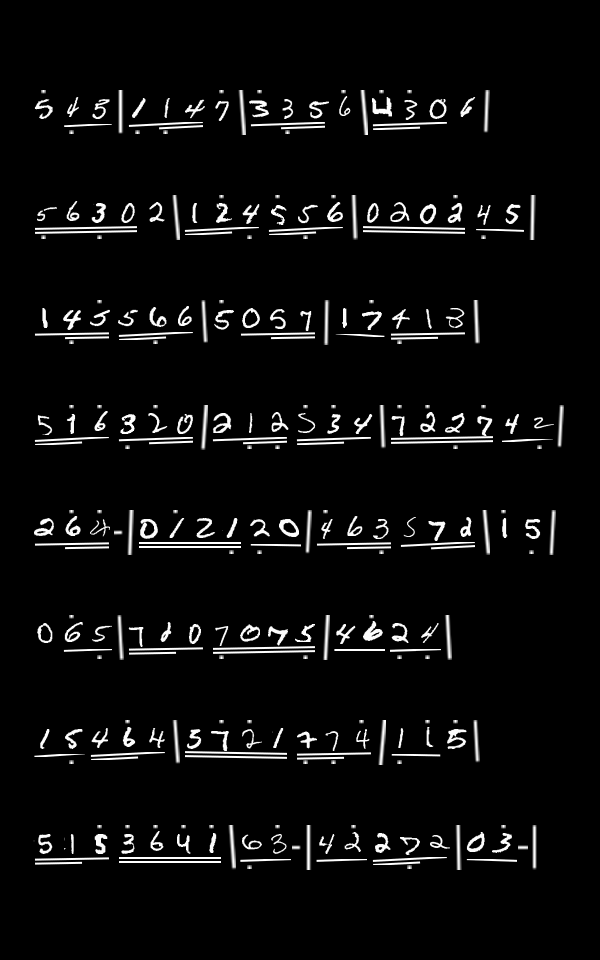 5 4 5 | 1 1 4 7 | 3 3 5 6 | 4 3 0 6 |
5 6 3 0 2 | 1 2 4 5 5 6 | 0 2 0 2 4 5 |
1 4 5 5 6 6 | 5 0 5 7 | 1 7 4 1 3 |
5 1 6 3 2 0 | 2 1 2 5 3 4 | 7 2 2 7 4 2 |
2 6 4 - | 0 1 2 1 2 0 | 4 6 3 5 7 2 | 1 5 |
0 6 5 | 7 1 0 7 0 7 5 | 4 6 2 4 |
1 5 4 6 4 | 5 7 2 1 7 7 4 | 1 1 5 |
5 1 5 3 6 4 1 | 6 3 - | 4 2 2 7 2 | 0 3 - |